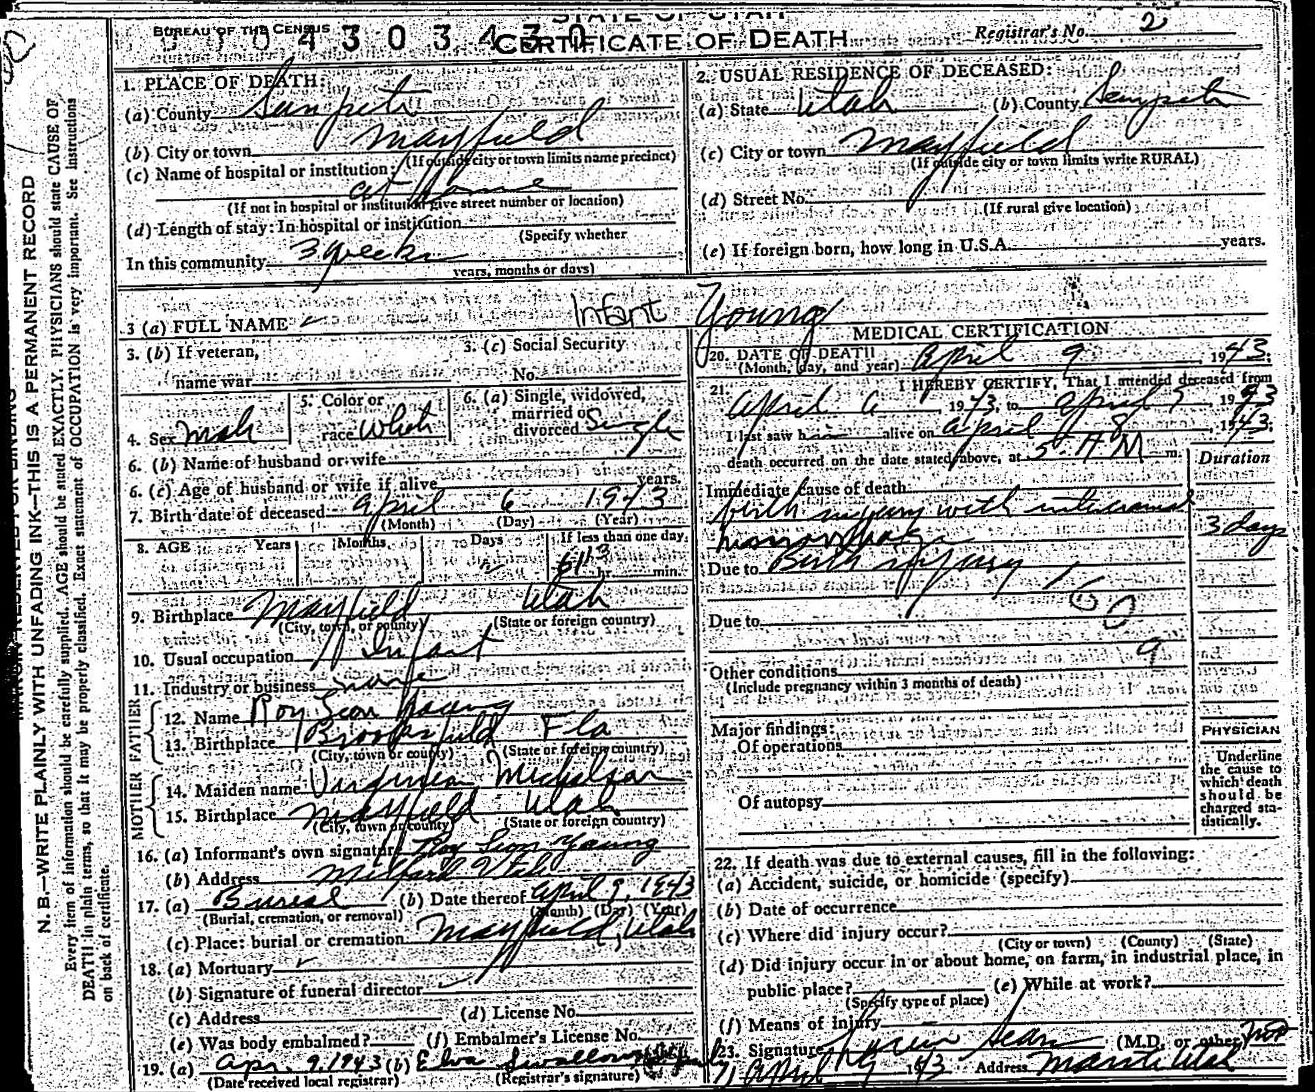 STATE OF UTAH
BUREAU OF THE CENSUS
CERTIFICATE OF DEATH
Registrar's No. 2
1. PLACE OF DEATH:
(a) County Sanpete
(b) City or town Mayfield
(If outside city or town limits name precinct)
(c) Name of hospital or institution:
at home
(If not in hospital or institution give street number or location)
(d) Length of stay: In hospital or institution
(Specify whether
In this community 3 weeks
years, months or days)
2. USUAL RESIDENCE OF DECEASED:
(a) State Utah (b) County Sanpete
(c) City or town Mayfield
(If outside city or town limits write RURAL)
(d) Street No.
(If rural give location)
(e) If foreign born, how long in U.S.A. years.
3 (a) FULL NAME Infant Young
3. (b) If veteran,
name war
3. (c) Social Security
No.
4. Sex Male
5. Color or
race White
6. (a) Single, widowed,
married or
divorced Single
6. (b) Name of husband or wife
6. (c) Age of husband or wife if alive years
7. Birth date of deceased April 6 1943
(Month) (Day) (Year)
8. AGE Years Months Days If less than one day
hr. min.
9. Birthplace Mayfield Utah
(City, town, or county) (State or foreign country)
10. Usual occupation Infant
11. Industry or business none
FATHER
12. Name Roy Leon Young
13. Birthplace Fla
(City, town or county) (State or foreign country)
MOTHER
14. Maiden name Virginia
15. Birthplace Mayfield Utah
(City, town or county) (State or foreign country)
16. (a) Informant's own signature Roy Leon Young
(b) Address Milford Utah
17. (a) Burial (b) Date thereof April 9, 1943
(Burial, cremation, or removal) (Month) (Day) (Year)
(c) Place: burial or cremation Mayfield, Utah
18. (a) Mortuary
(b) Signature of funeral director
(c) Address (d) License No.
(e) Was body embalmed? (f) Embalmer's License No.
19. (a) Apr. 9, 1943 (b) Elva
(Date received local registrar) (Registrar's signature)
MEDICAL CERTIFICATION
20. DATE OF DEATH
(Month, day, and year) April 9, 1943;
21. I HEREBY CERTIFY, That I attended deceased from
April 6, 1943, to April 1943
I last saw him alive on April 8, 1943;
death occurred on the date stated above, at 5 A M m.
Duration
Immediate cause of death
birth injury with intracranial
3 days
Due to Birth injury
160
Due to
9
Other conditions
(Include pregnancy within 3 months of death)
Major findings:
Of operations
Of autopsy
PHYSICIAN
Underline
the cause to
which death
should be
charged sta-
tistically.
22. If death was due to external causes, fill in the following:
(a) Accident, suicide, or homicide (specify)
(b) Date of occurrence
(c) Where did injury occur?
(City or town) (County) (State)
(d) Did injury occur in or about home, on farm, in industrial place, in
public place? (e) While at work?
(Specify type of place)
(f) Means of injury
23. Signature Sears (M.D. or other)
April 9 1943 Address Manti Utah
N. B.—WRITE PLAINLY WITH UNFADING INK—THIS IS A PERMANENT RECORD
Every item of information should be carefully supplied. AGE should be stated EXACTLY. PHYSICIANS should state CAUSE OF
DEATH in plain terms, so that it may be properly classified. Exact statement of OCCUPATION is very important. See instructions
on back of certificate.